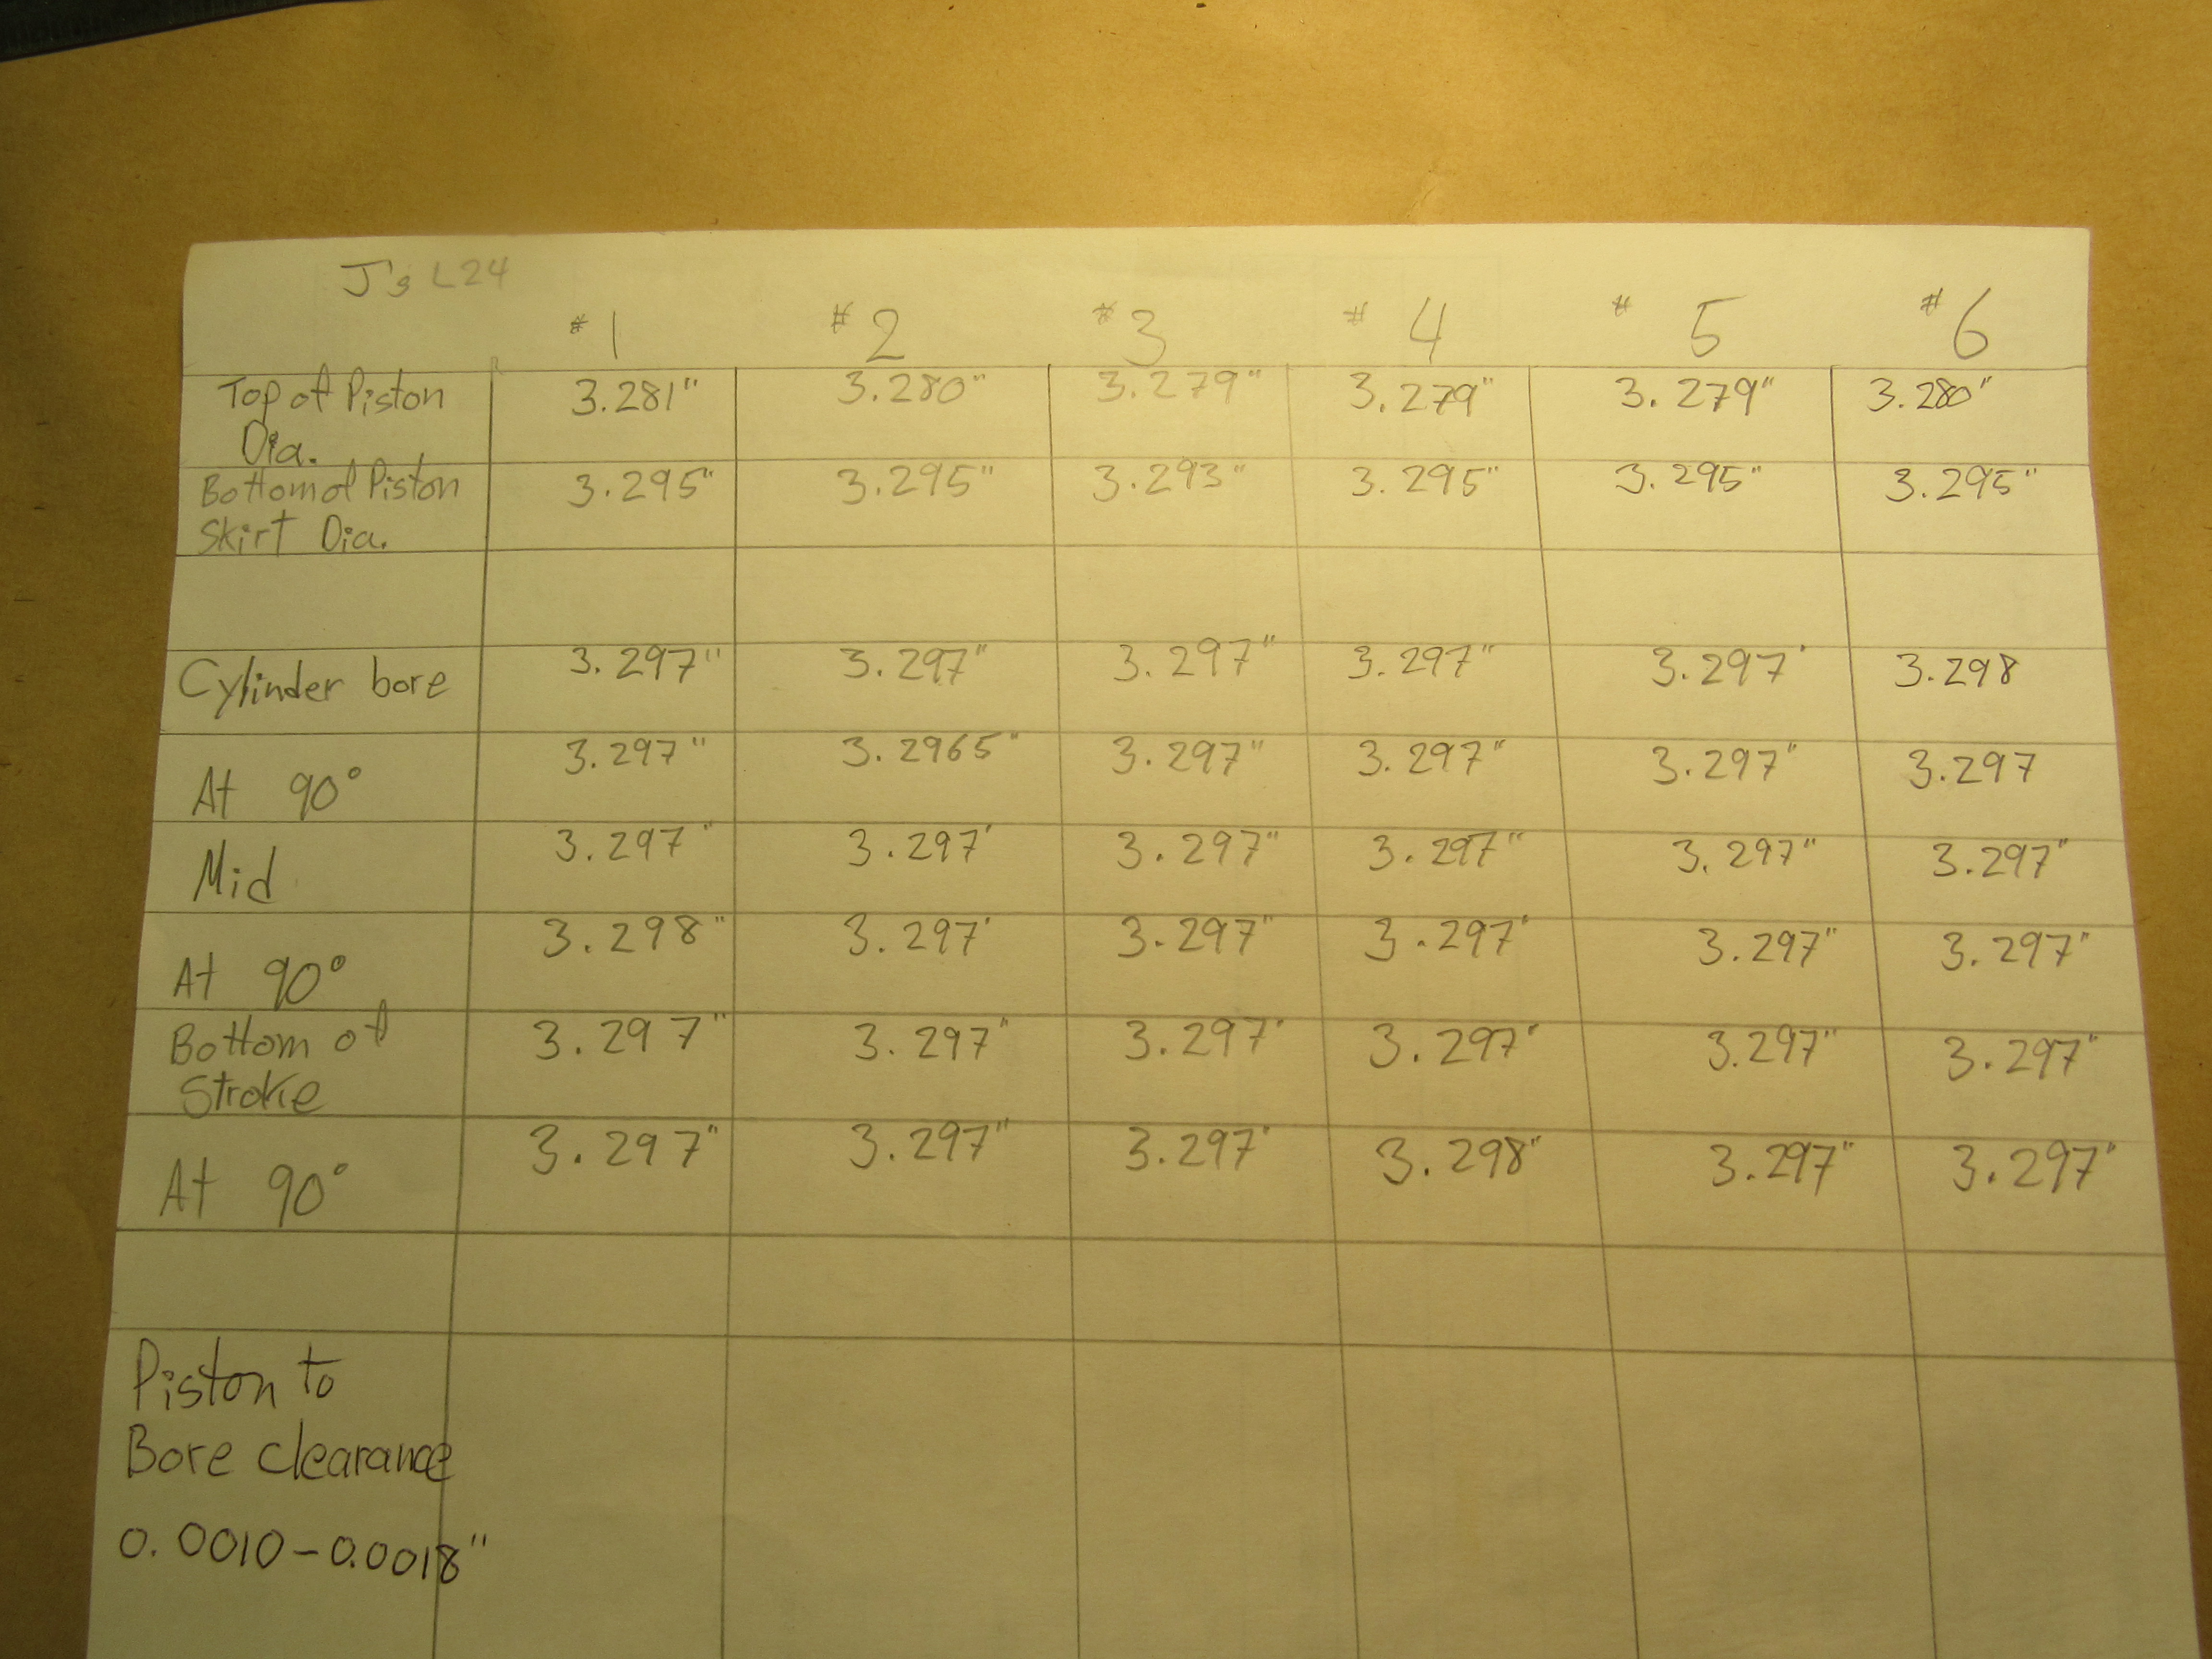 J's L24
#1 #2 #3 #4 #5 #6
Top of Piston 3.281" 3.280" 3.279" 3.279" 3.279" 3.280"
Dia.
Bottom of Piston 3.295" 3.295" 3.293" 3.295" 3.295" 3.295"
Skirt Dia.
Cylinder bore 3.297" 3.297" 3.297" 3.297" 3.297' 3.298
At 90° 3.297" 3.2965" 3.297" 3.297" 3.297" 3.297
Mid 3.297" 3.297' 3.297" 3.297" 3.297" 3.297"
At 90° 3.298" 3.297' 3.297" 3.297' 3.297" 3.297"
Bottom of 3.297" 3.297" 3.297' 3.297' 3.297" 3.297"
Stroke
At 90° 3.297" 3.297" 3.297' 3.298" 3.297" 3.297'
Piston to
Bore clearance
0.0010-0.0018"